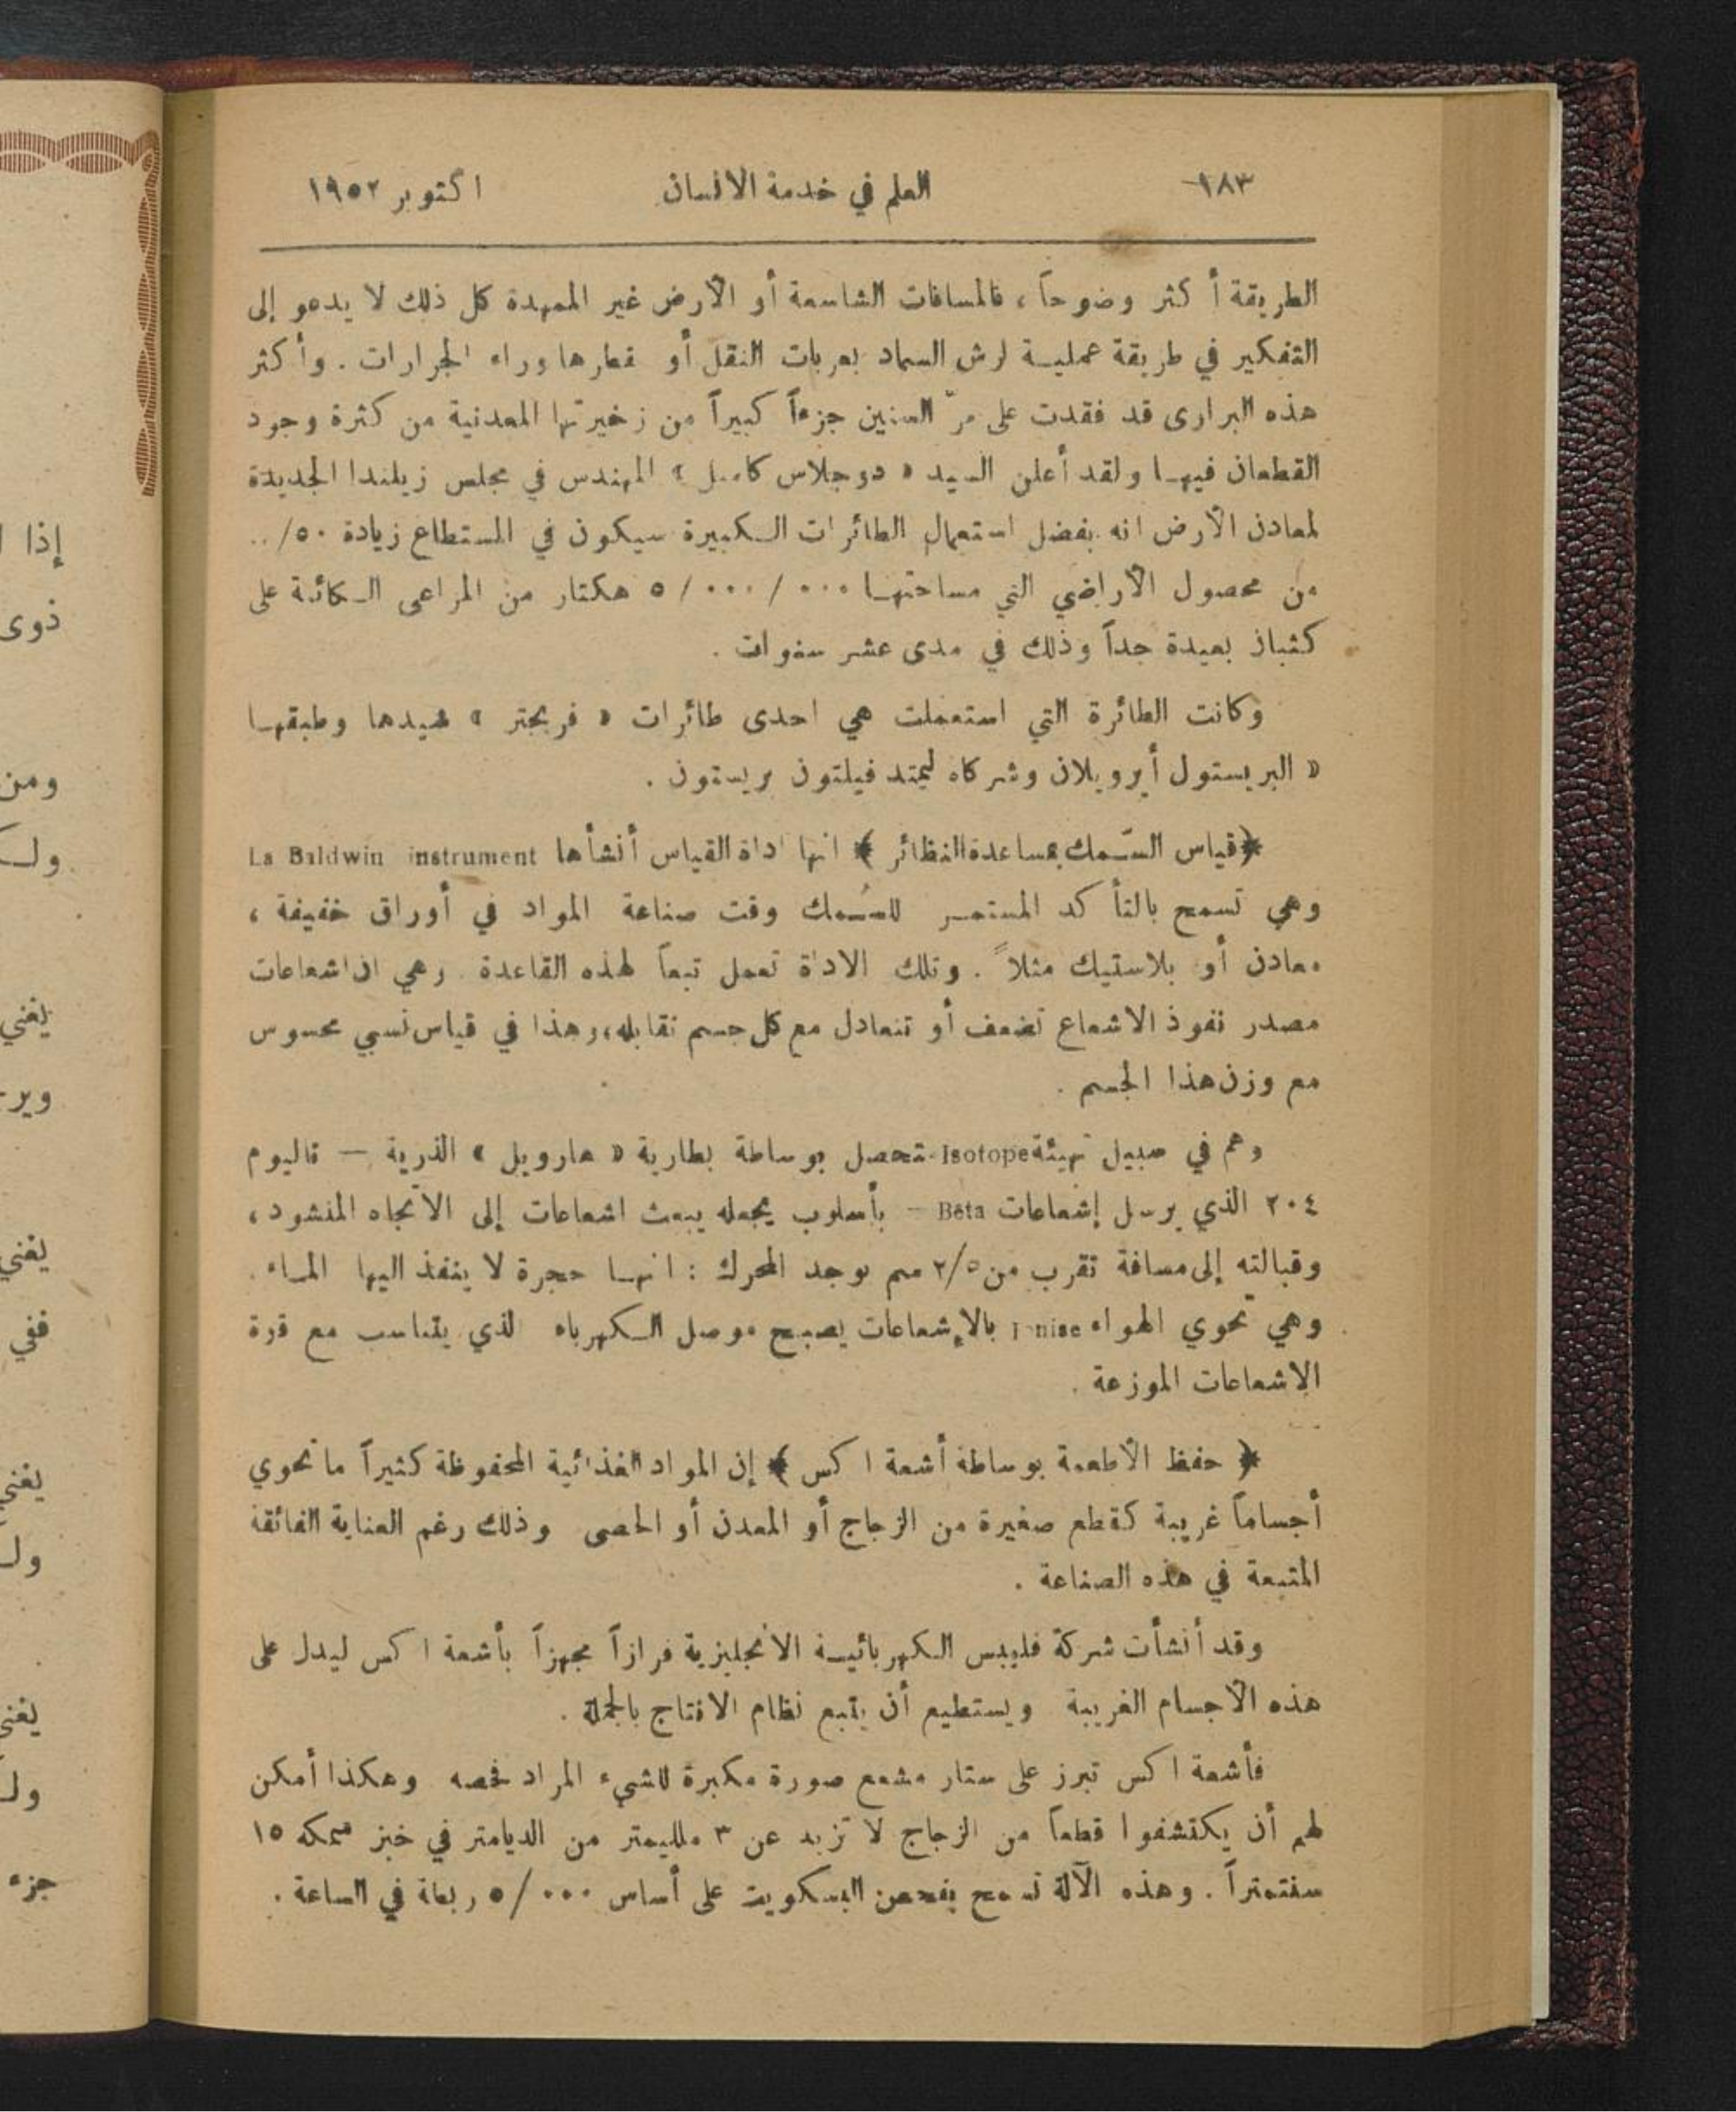 ١٨٣ العلم في خدمة الانسان اكتوبر ١٩٥٢
الطريقة أكثر وضوحاً ، فالمسافات الشاسعة أو الأرض غير الممهدة كل ذلك لا يدعو إلى
التفكير في طريقة عملية لرش السماد بعربات النقل أو قطارها وراء الجرارات . وأكثر
هذه البرارى قد فقدت على مرّ السنين جزءاً كبيراً من زخيرتها المعدنية من كثرة وجود
القطعان فيها ولقد أعلن السيد « دوجلاس كامبل » المهندس في مجلس زيلندا الجديدة
لمعادن الأرض انه بفضل استعمال الطائرات الكبيرة سيكون في المستطاع زيادة ٥٠/..
من محصول الأراضي التي مساحتها ٥/٠٠٠/٠٠٠ هكتار من المراعى الكائنة على
كثبان بعيدة جداً وذلك في مدى عشر سنوات .
وكانت الطائرة التي استعملت هي احدى طائرات « فريجتر » شيدها وطبقها
« البريستول أيروبلان وشركاه ليمتد فيلتون بريستون .
﴿ قياس السّمك بمساعدة النظائر ﴾ انها اداة القياس أنشأها La Baldwin instrument
وهي تسمح بالتأكد المستمر للسُمك وقت صناعة المواد في أوراق خفيفة ،
معادن أو بلاستيك مثلاً . وتلك الاداة تعمل تبعاً لهذه القاعدة وهي ان اشعاعات
مصدر نفوذ الاشعاع تضعف أو تتعادل مع كل جسم تقابله ، وهذا في قياس نسبي محسوس
مع وزن هذا الجسم .
وهم في سبيل تهيئة Isotope تحصل بوساطة بطارية « هارويل » الذرية — تاليوم
٢٠٤ الذي يرسل إشعاعات Bêta — بأسلوب يجعله يبعث اشعاعات إلى الاتجاه المنشود ،
وقبالته إلى مسافة تقرب من ٢/٥ سم يوجد المحرك : انها حجرة لا ينفذ اليها الماء .
وهي تحوي الهواء Ionise بالإشعاعات يصبح موصل الكهرباء الذي يتناسب مع قوة
الاشعاعات الموزعة .
﴿ حفظ الأطعمة بوساطة أشعة اكس ﴾ إن المواد الغذائية المحفوظة كثيراً ما تحوي
أجساماً غريبة كقطع صغيرة من الزجاج أو المعدن أو الحصى وذلك رغم العناية الفائقة
المتبعة في هذه الصناعة .
وقد أنشأت شركة فليبس الكهربائية الانجليزية فرازاً مجهزاً بأشعة اكس ليدل على
هذه الأجسام الغريبة ويستطيع أن يتبع نظام الانتاج بالجملة .
فأشعة اكس تبرز على ستار مشمع صورة مكبرة للشيء المراد فحصه وهكذا أمكن
لهم أن يكتشفوا قطعاً من الزجاج لا تزيد عن ٣ ملليمتر من الديامتر في خبز سمكه ١٥
سنتمتراً . وهذه الآلة تسمح بفحص البسكويت على أساس ٥/٠٠٠ ربطة في الساعة .
إذا
ذوى
ومن
ولـ
يغني
وير
يغني
ففي
يغني
ولـ
يغني
ولـ
جزء